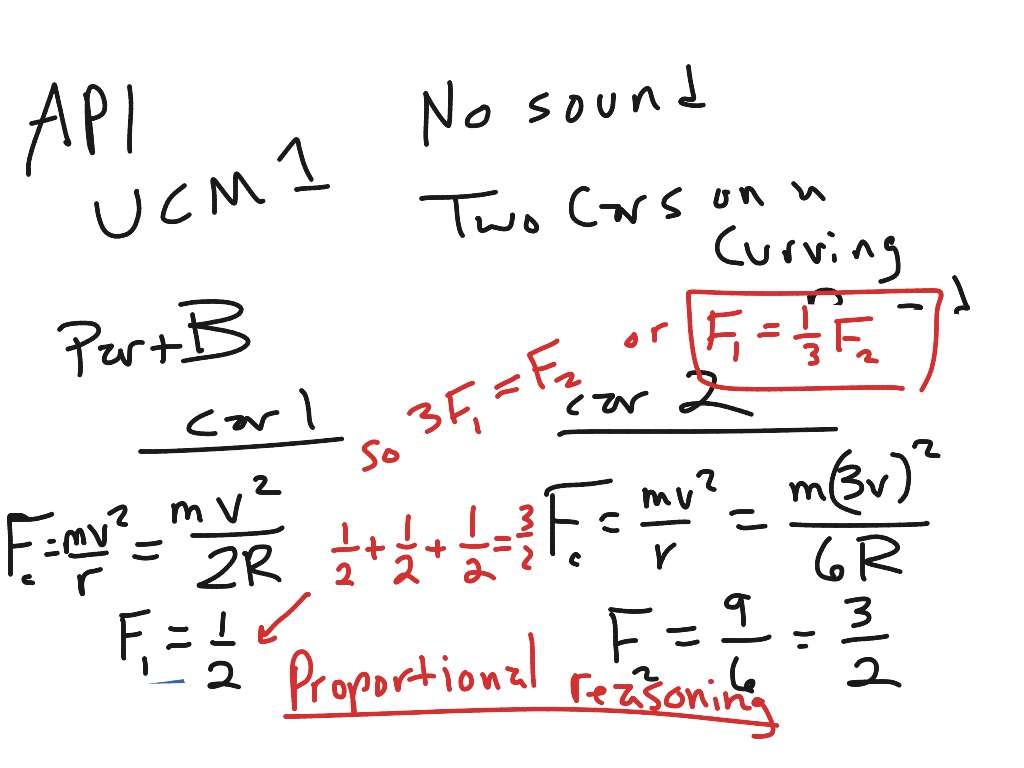 AP1
UCM 1
No sound
Two Cars on a
Curving
Part B
or F₁ = 1/3 F₂
so 3F₁ = F₂
car 1
car 2
F_c = mv²/r = mv²/2R
1/2 + 1/2 + 1/2 = 3/2
F_c = mv²/r = m(3v)²/6R
F₁ = 1/2
F₂ = 9/6 = 3/2
Proportional reasoning